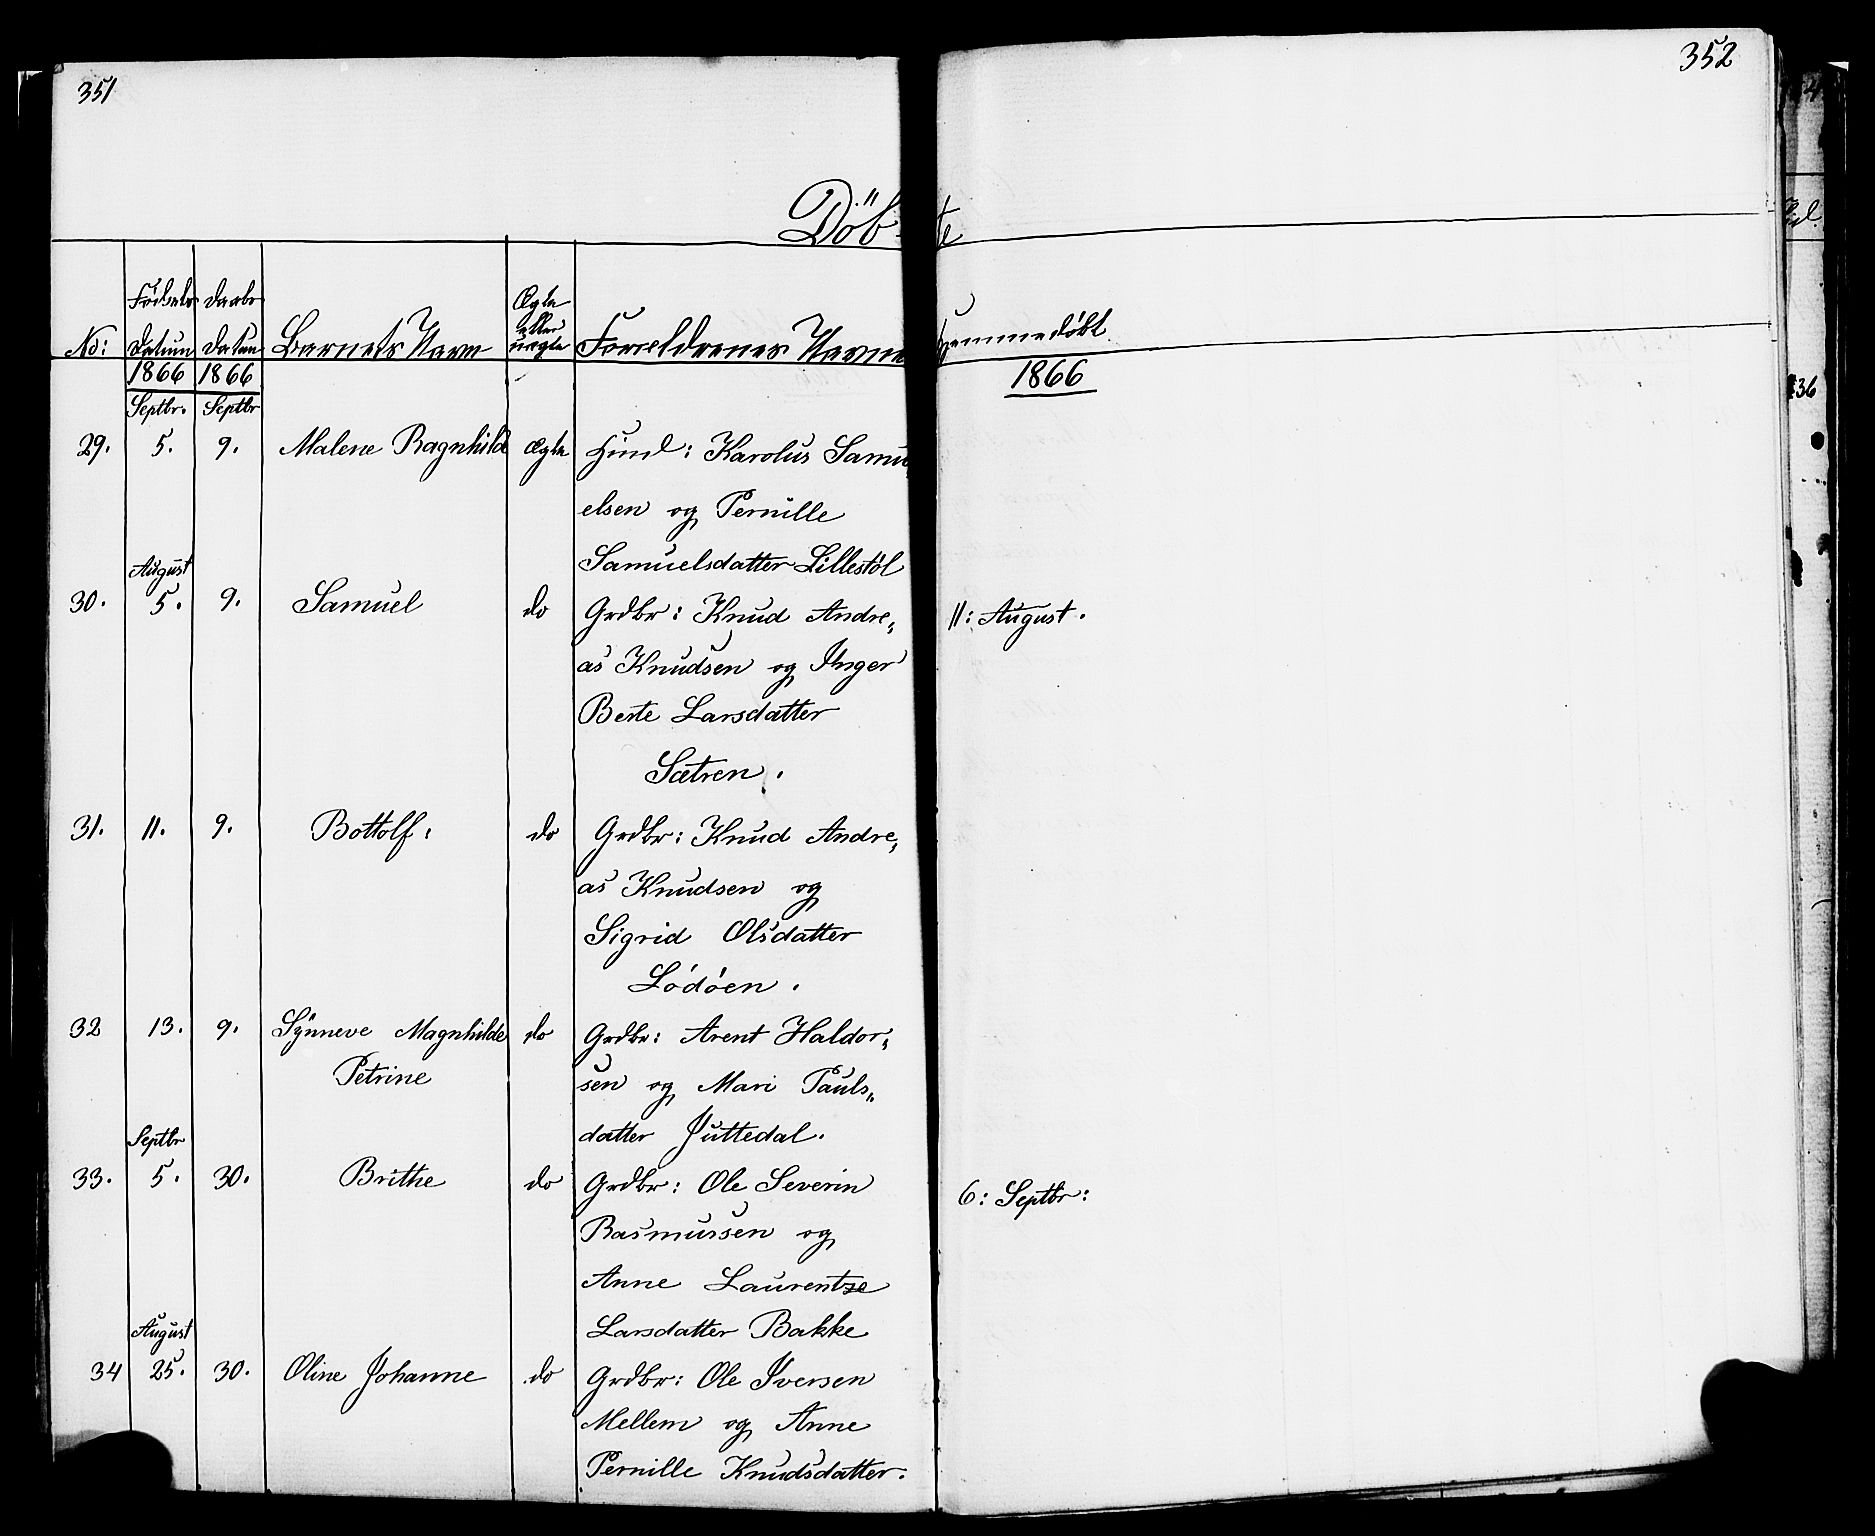 351
352
Döbte
No:
Fødsels Datum
Daabs Datum
Barnets Navn
Ægte eller uægte
Forældrenes Navne
Hjemmedøbt
1866 1866
1866
Septbr. Septbr
29. 5. 9. Malene Ragnhilde Ægte Huusm: Karolus Samu
elsen og Pernille
Samuelsdatter Lillestøl
August
30. 5. 9. Samuel do Grdbr: Knud Andre„ 11: August.
as Knudsen og Inger
Berte Larsdatter
Sætren.
31. 11. 9. Bottolf: do Grdbr: Knud Andre„
as Knudsen og
Sigrid Olsdatter
Lødøen.
32 13. 9. Synneve Magnhilde do Grdbr: Arent Haldor„
Petrine sen og Mari Pauls„
datter Juttedal.
Septbr
33. 5. 30. Brithe do Grdbr: Ole Severin 6: Septbr:
Rasmussen og
Anne Laurentze
Larsdatter Bakke
August
34 25. 30. Oline Johanne do Grdbr: Ole Iversen
Mellem og Anne
Pernille Knudsdatter.